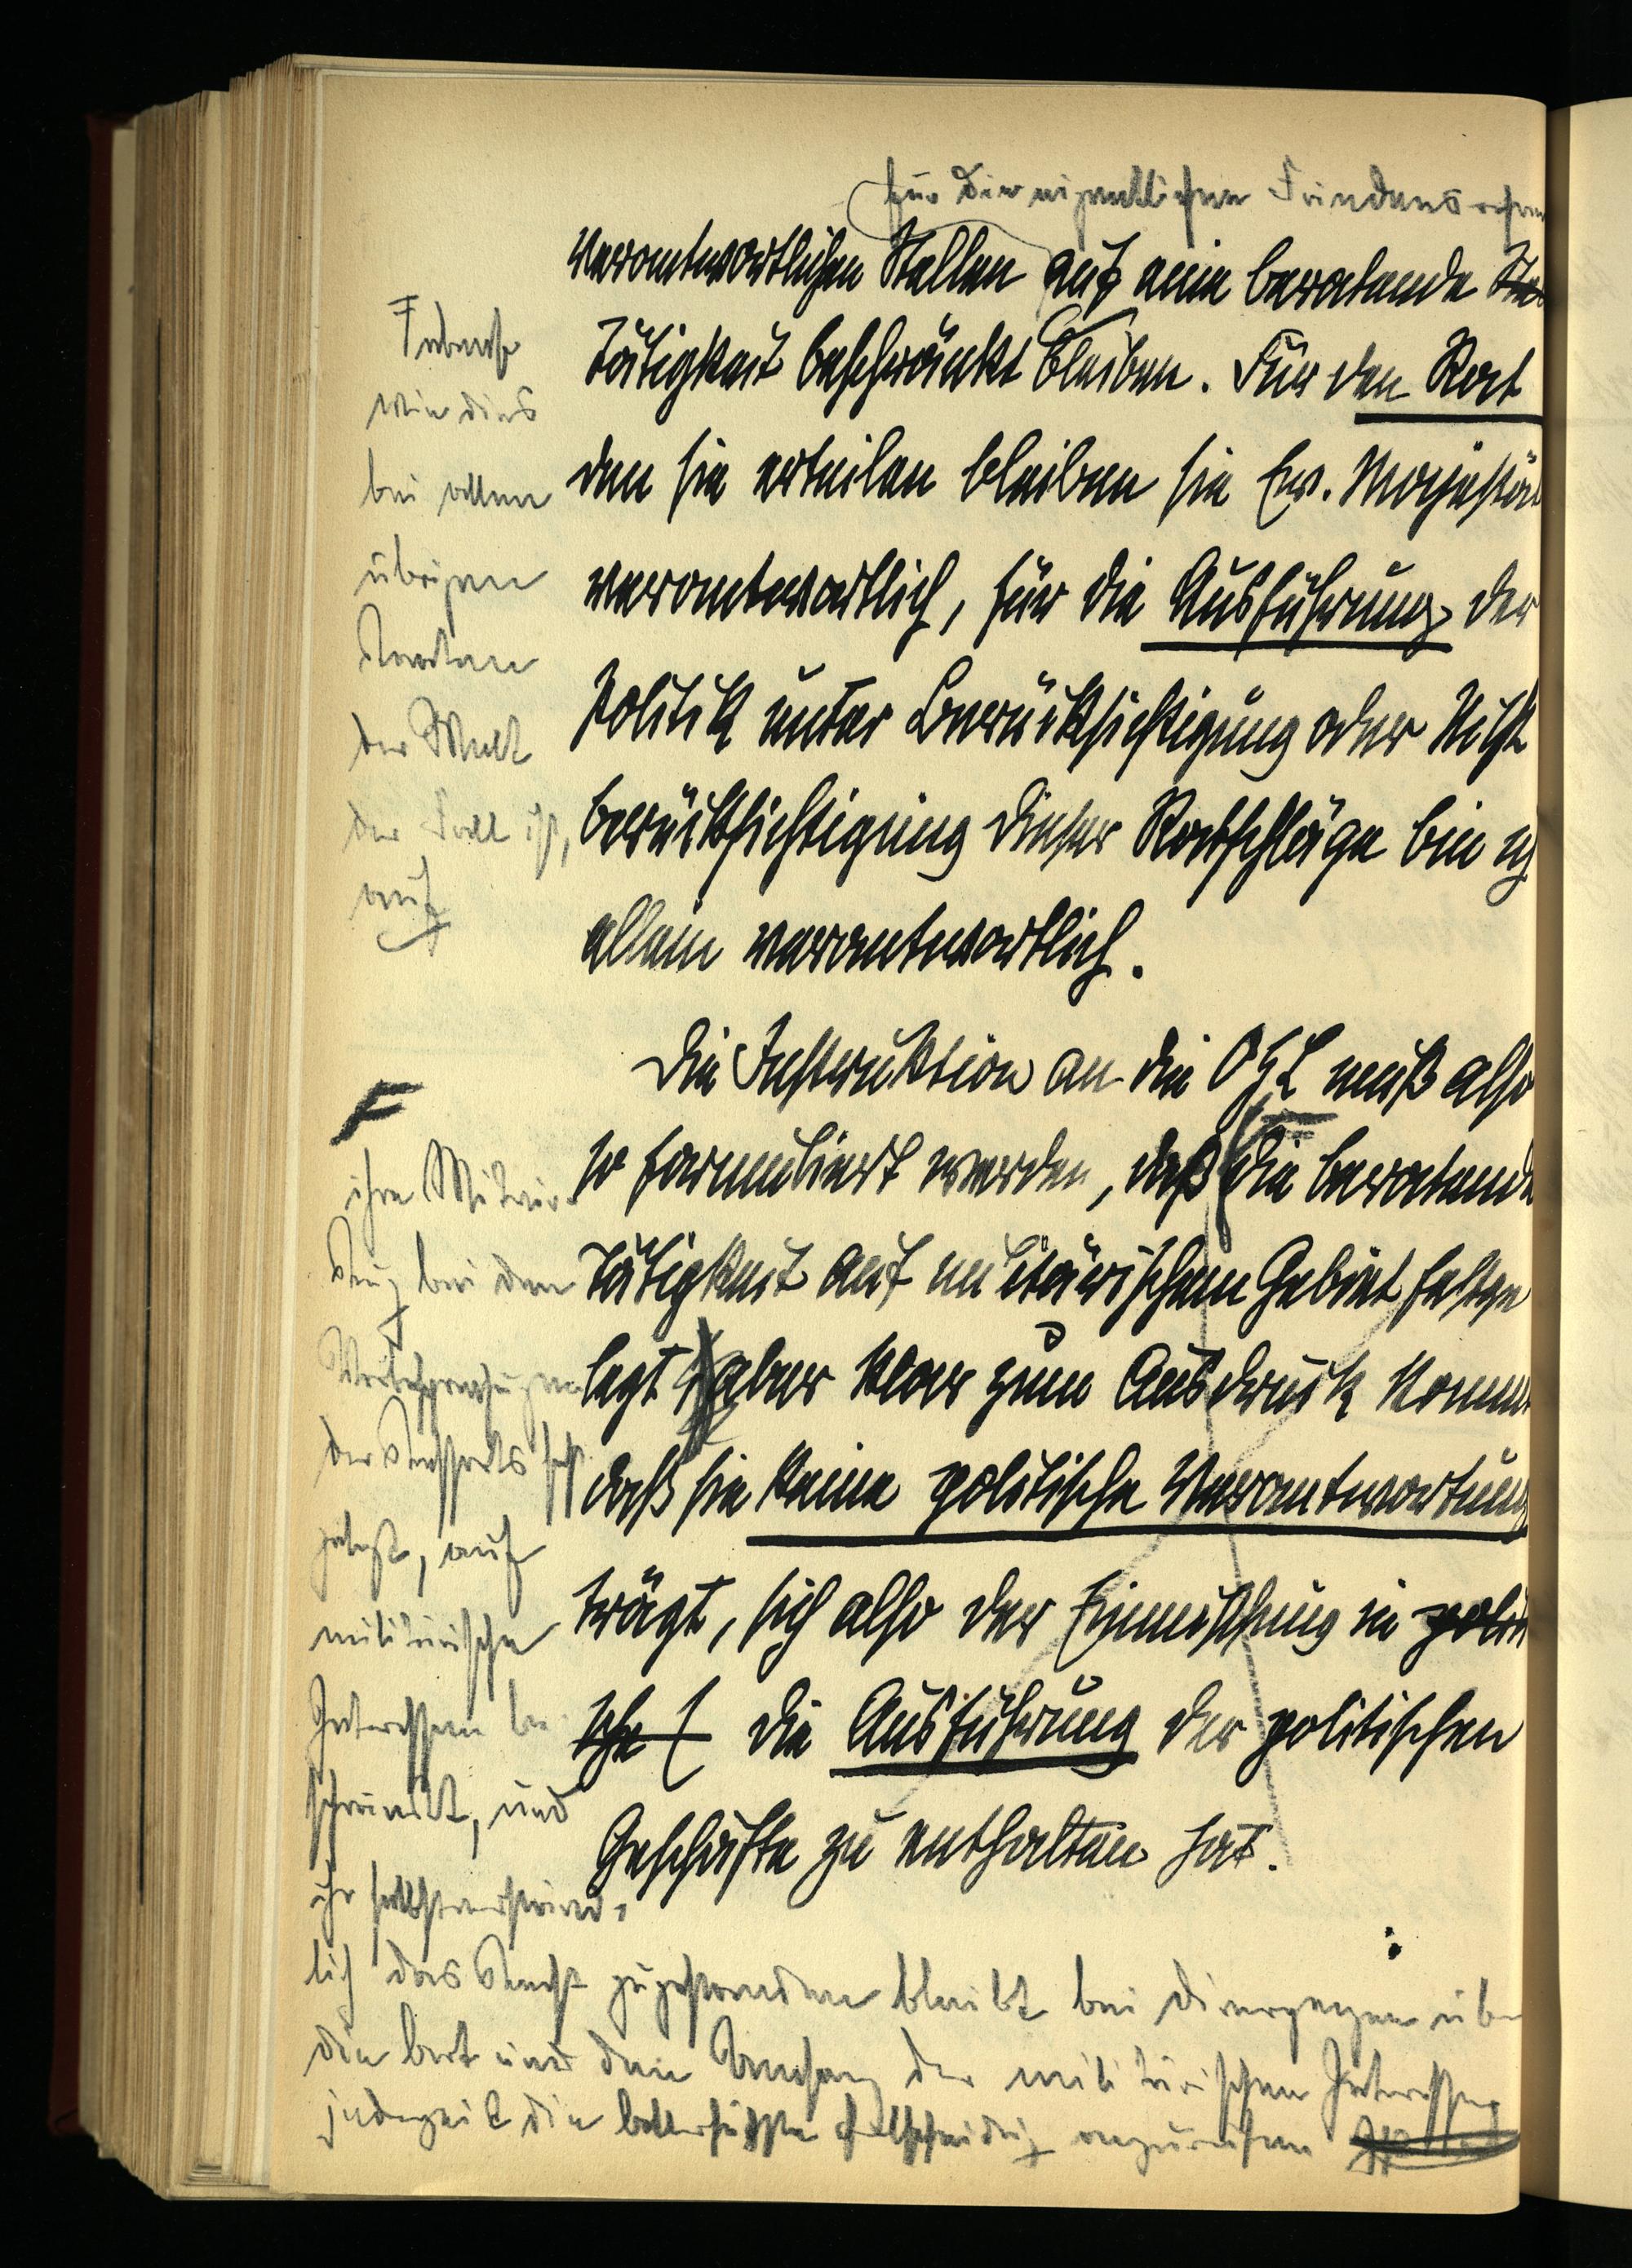 für die eigentlichen Friedens
verantwortlichen Stellen auf eine beratende
Tätigkeit beschränkt bleiben. Für den Rat
den sie erteilen bleiben sie Ew. Majestät
verantwortlich, für die Ausführung der
Politik unter Berücksichtigung oder Nicht
berücksichtigung dieser Ratschläge bin ich
allein verantwortlich.
Die Instruktion an die OHL muß also
so formuliert werden, daß die beratende
Tätigkeit auf militärischem Gebiet festge
legt aber klar zum Ausdruck kommt
daß sie keine politische Verantwortung
trägt, sich also der Einmischung in polit
sche die Ausführung der politischen
Geschäfte zu enthalten hat.
F
wie dies
bei allen
übrigen
Staaten
der Welt
der Fall ist,
auf
F
ihre Mitwir
kung bei den
der Ressorts fest
gelegt, auf
militärische
Interessen be
schränkt, und
ihr selbstverständ-
lich das Recht zugestanden bleibt bei Divergenzen über
die Art und den Umfang der militärischen Interessen
jederzeit die allerhöchste Entscheidung anzurufen